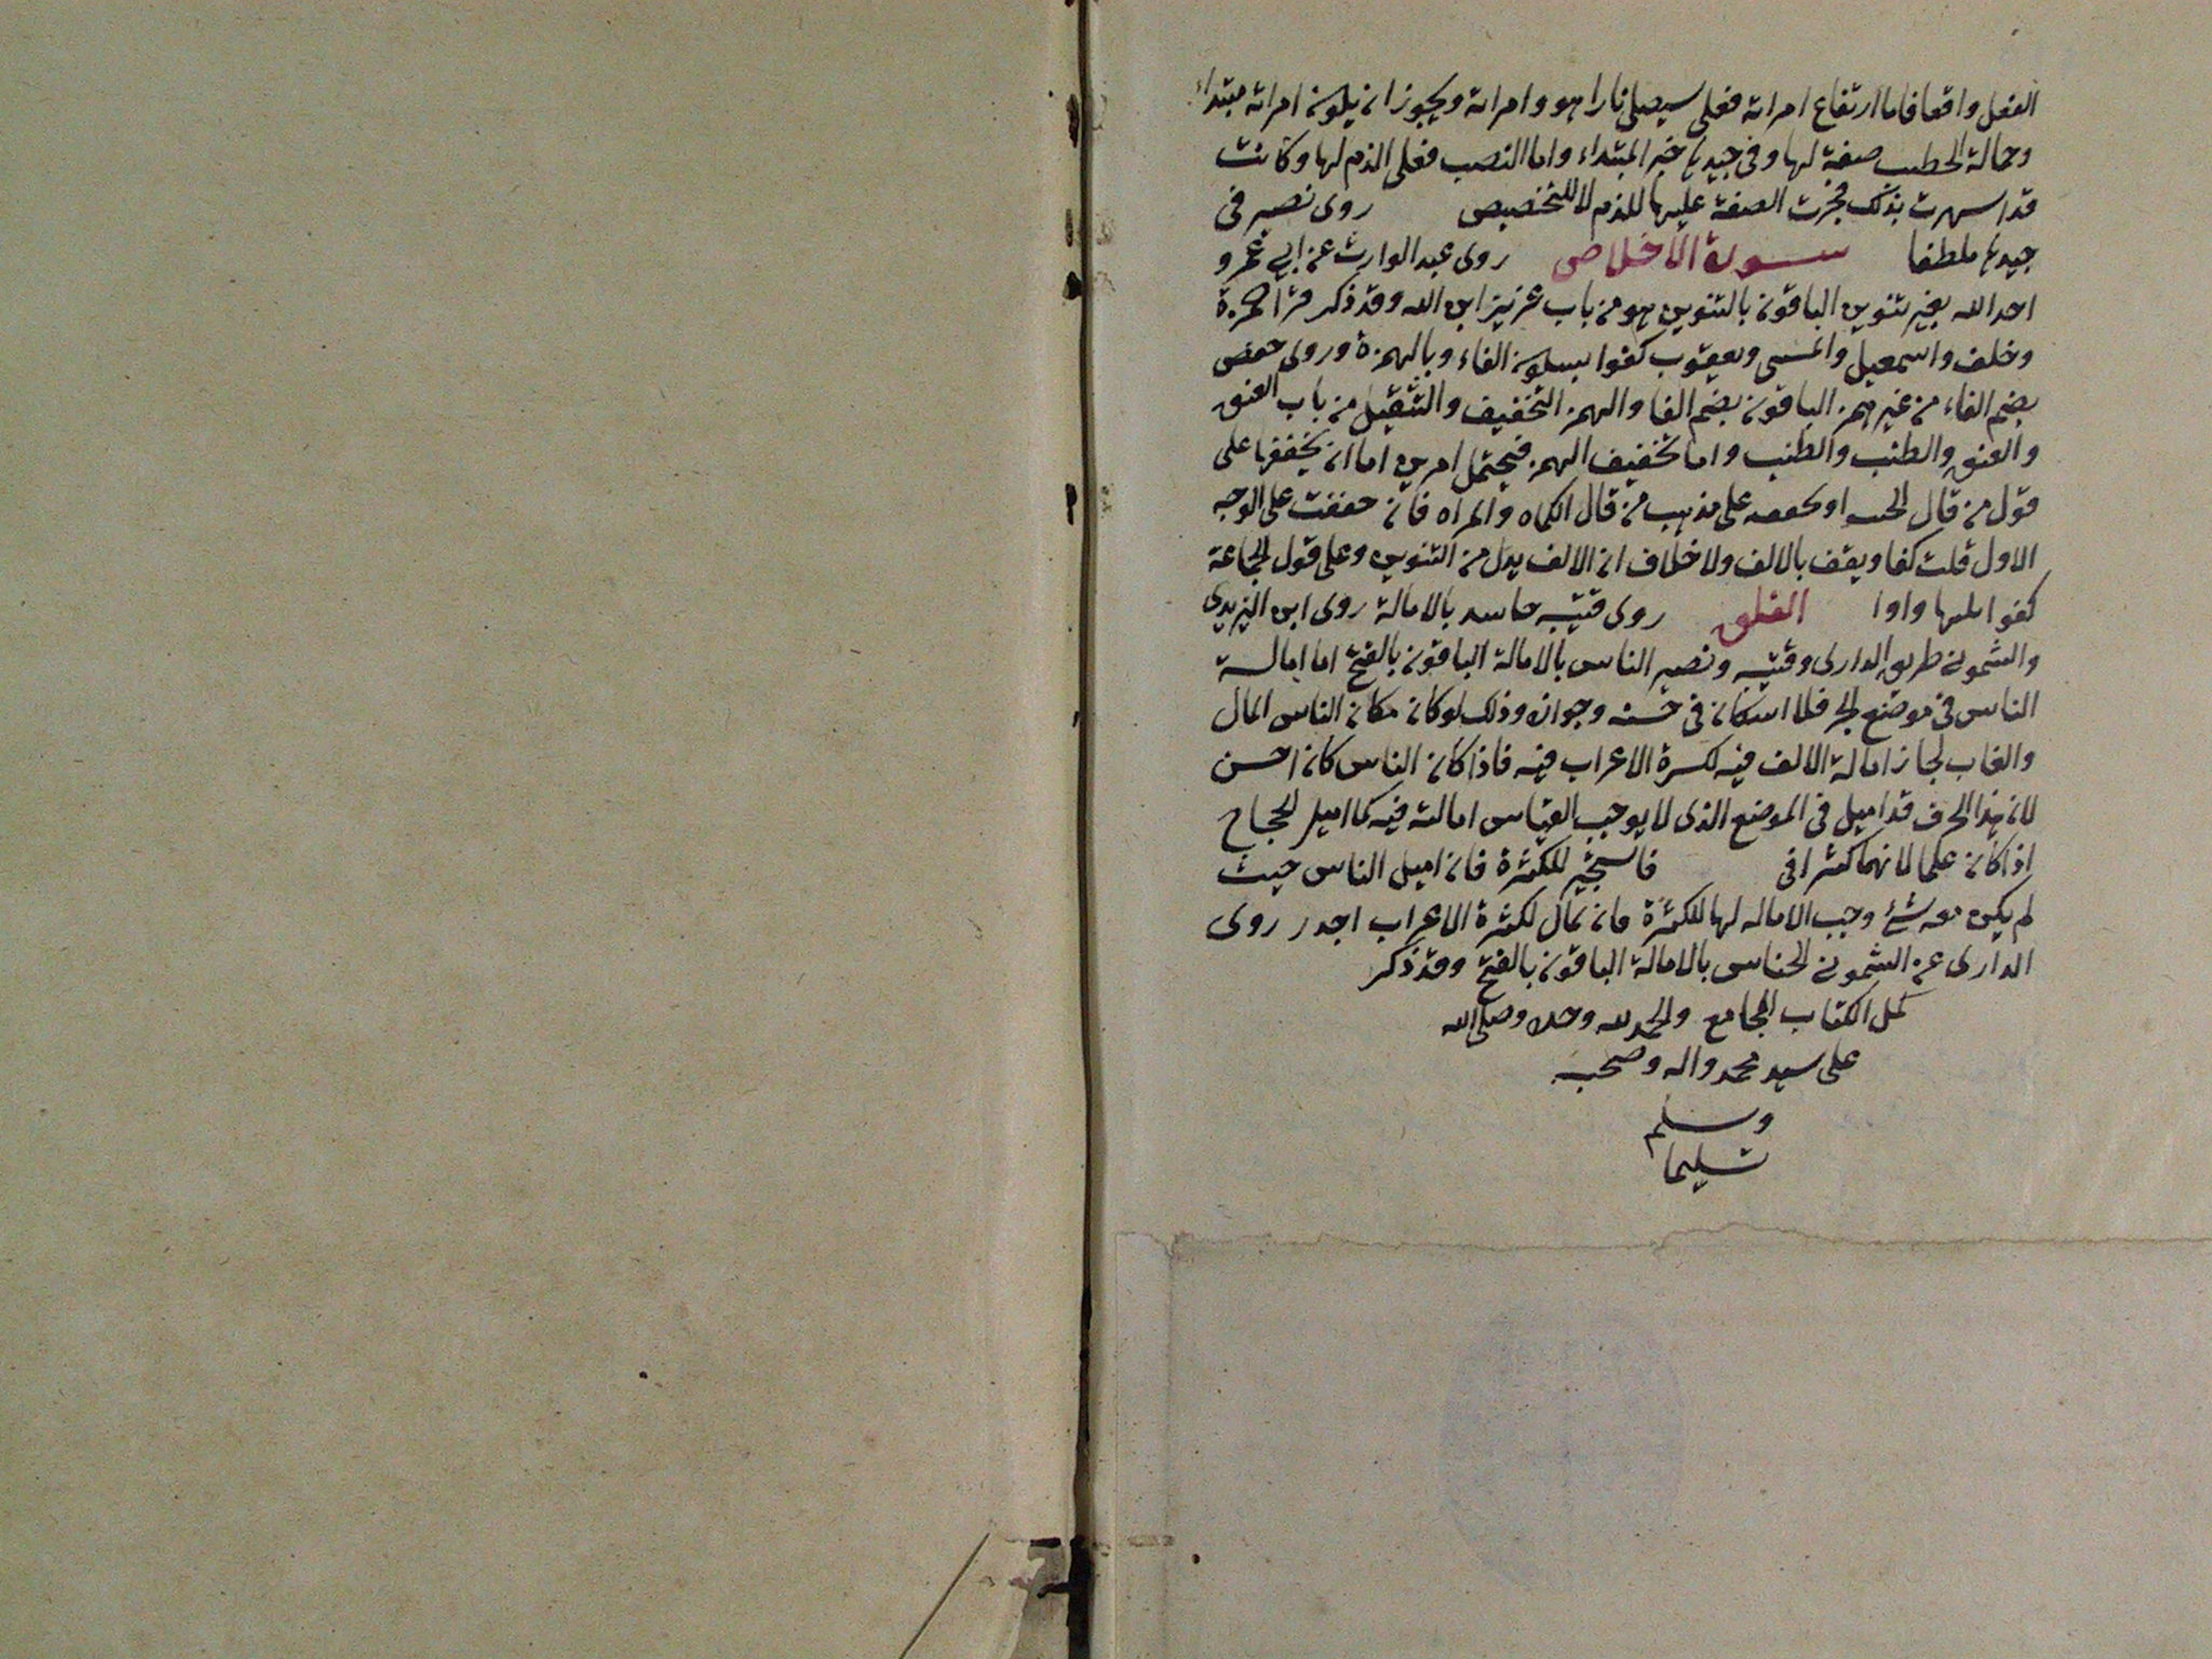 الفعل واقعا فاما ارتفاع امراته فعلى سيصلى نارا هو وامراته ويجوز ان يكون امراته مبتداء
وحمالة الحطب صفة لها وفى جيدها خبر المبتداء واما النصب فعلى الذم لها وكانت
قد اسهرت بذلك فجرت الصفة عليها للذم لا للتخصيص روى نصير فى
جيدها ملطفا سورة الاخلاص روى عبد الوارث عن ابي عمرو
احد الله بغير تنوين الباقون بالتنوين هو من باب عزيز ابن الله وقد ذكر قرا حمزة
وخلف واسمعيل والمسى ويعقوب كفوا بسكون الفاء وبالهمزة وروى حفص
بضم الفاء من غير همز الباقون بضم الفا والهمز التخفيف والتثقيل من باب العنق
والعنق والطنب والطنب واما تخفيف الهمز فيحتمل امرين اما ان يخففها على
قول من قال الخب او كعصه على مذهب من قال الكماه والمراه فان حففت على الوجه
الاول قلت كفا ويقف بالالف ولا خلاف ان الالف بدل من التنوين وعلى قول الجماعة
كفوا واوا الفلق روى قتيبه حاسد بالامالة روى ابن اليزيدى
والشمونى طريق الدارى وقتيبه ونصير الناس بالامالة الباقون بالفتح اما امالة
الناس فى موضع الجر فلا اسكان فى حسنه وجوازه وذلك لو كان مكان الناس المال
والغاب لجاز امالة الالف فيه لكسرة الاعراب فيه فاذا كان الناس كان احسن
لان هذا الحرف قد اميل فى الموضع الذى لا يوجب القياس امالته فيه كما اميل الحجاج
اذا كان علما لانهما كثرا فى فاستجير للكثرة فان اميل الناس حيث
لم يكن معه شئ وجب الاماله لها للكثرة فان تمال لكثرة الاعراب اجدر روى
الدارى عن الشمونى الخناس بالامالة الباقون بالفتح وقد ذكر
كمل الكتاب الجامع والحمد لله وحده وصلى الله
على سيد محمد واله وصحبه
وسلم
تسليما